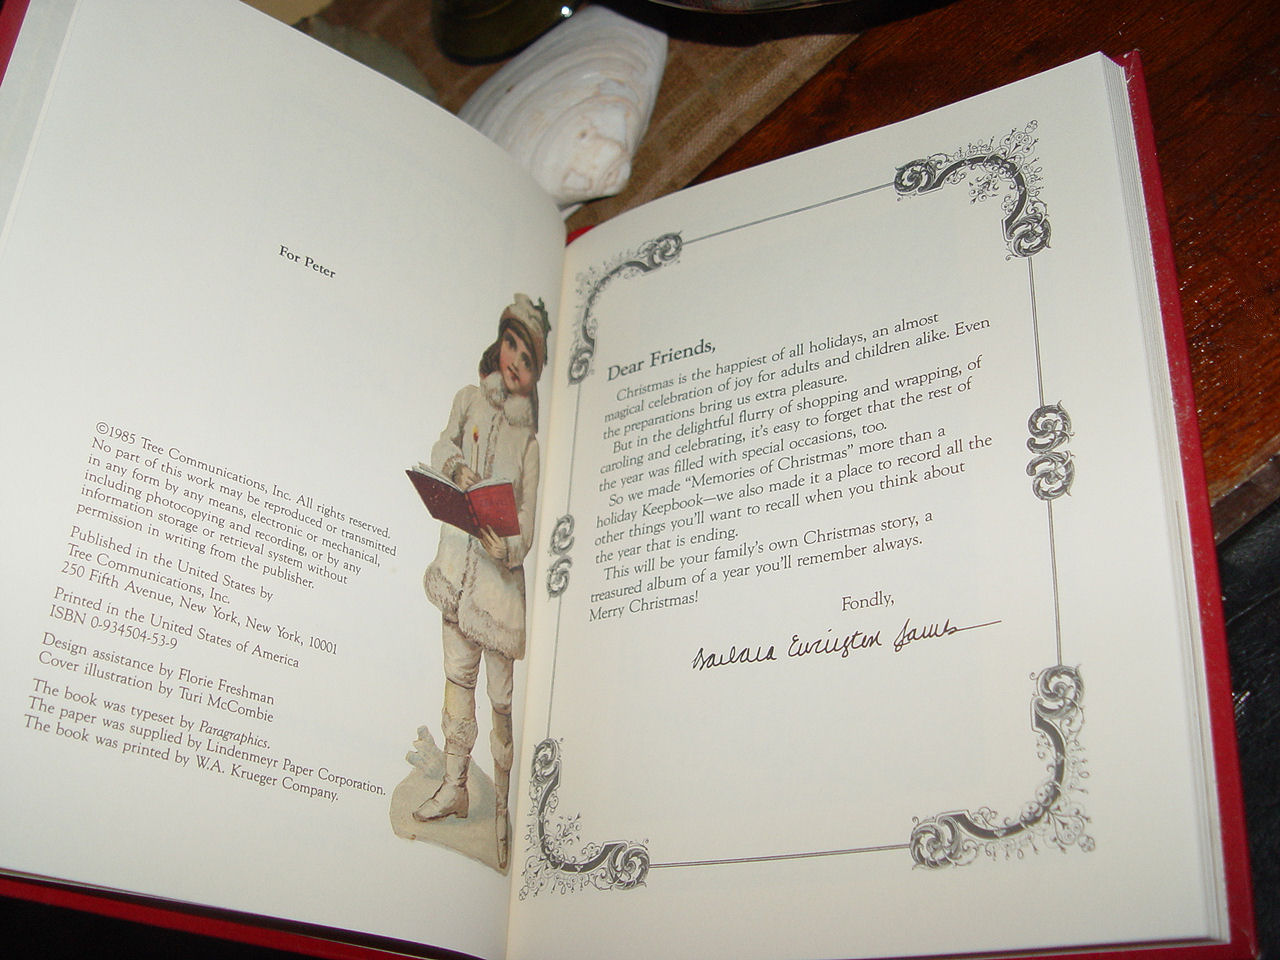 For Peter
©1985 Tree Communications, Inc. All rights reserved.
No part of this work may be reproduced or transmitted
in any form by any means, electronic or mechanical,
including photocopying and recording, or by any
information storage or retrieval system without
permission in writing from the publisher.
Published in the United States by
Tree Communications, Inc.
250 Fifth Avenue, New York, New York, 10001
Printed in the United States of America
ISBN 0-934504-53-9
Design assistance by Florie Freshman
Cover illustration by Turi McCombie
The book was typeset by Paragraphics.
The paper was supplied by Lindenmeyr Paper Corporation.
The book was printed by W.A. Krueger Company.
Dear Friends,
Christmas is the happiest of all holidays, an almost
magical celebration of joy for adults and children alike. Even
the preparations bring us extra pleasure.
But in the delightful flurry of shopping and wrapping, of
caroling and celebrating, it's easy to forget that the rest of
the year was filled with special occasions, too.
So we made "Memories of Christmas" more than a
holiday Keepbook—we also made it a place to record all the
other things you'll want to recall when you think about
the year that is ending.
This will be your family's own Christmas story, a
treasured album of a year you'll remember always.
Merry Christmas!
Fondly,
Barbara